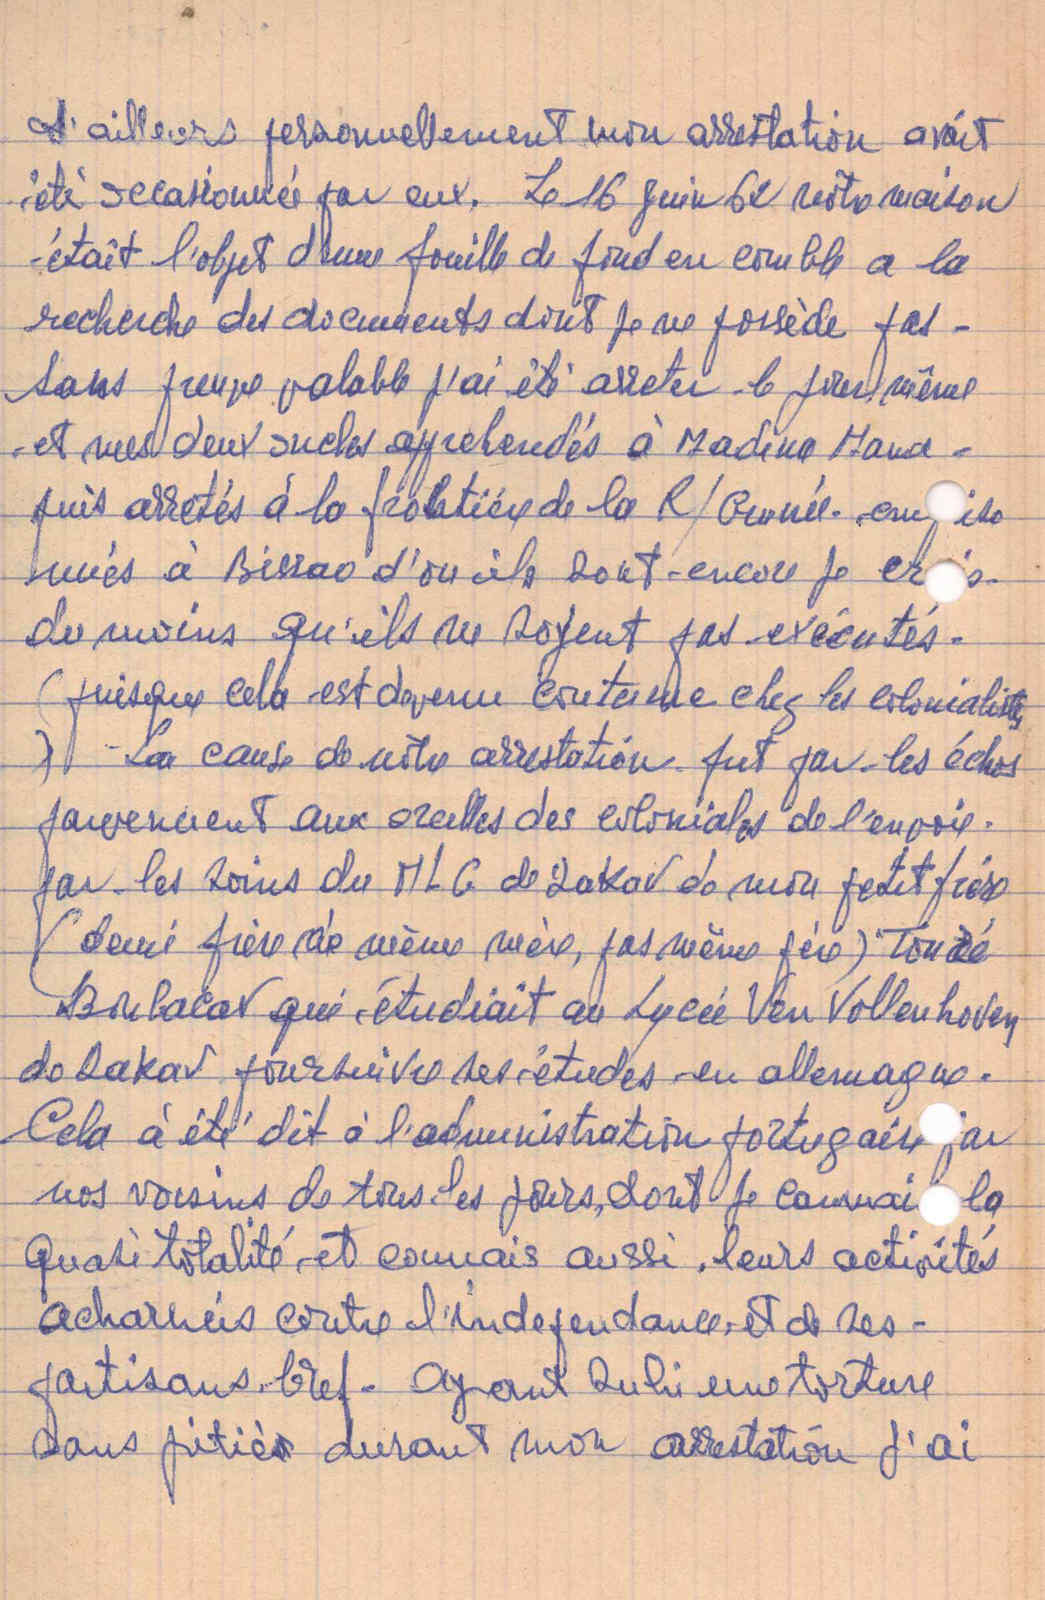 d'ailleurs personnellement mon arrestation avait
été occasionnée par eux. Le 16 Juin 62 nôtre maison
étaît l'objet d'une fouille de fond en comble a la
recherche des documents dont Je ne possède pas -
Sans preuve valable j'ai été arreter le jour même
et mes deux oncles apprehendés à Madina Mana -
puis arretés à la frontière de la R/Guinée. empriso
nnés à Bissao d'ou ils sont encore Je crois.
du moins qu'ils ne soyent pas exécutés.
(puisque cela est devenu coutume chez les colonialistes
) La cause de nôtre arrestation fut par les échos
parvenuent aux oreilles des coloniales de l'envoie.
par les soins du MLG de Dakar de mon petit frère
(demi frère de même mère, pas même père) Touré
Boubacar qui étudiait au Lycée Ven Vollenhoven
de Dakar poursuivre ses études en allemagne.
Cela à été dit à l'administration portugaise par
nos voisins de tous les jours, dont Je connais la
quasi totalité et connais aussi, leurs activités
acharnées contre l'independance, et de ses -
partisans. bref - ayant subi une torture
sans pitiés durant mon arrestation J'ai